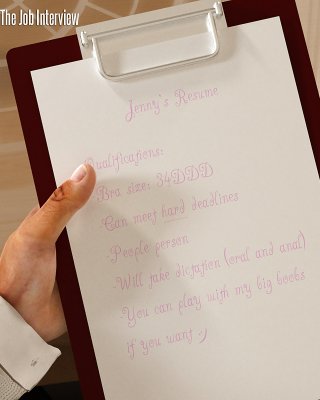 The Job Interview
Jenny's Resume
Qualifications:
-Bra size: 34DDD
-Can meet hard deadlines
-People person
-Will take dictation (oral and anal)
-You can play with my big boobs
if you want :)